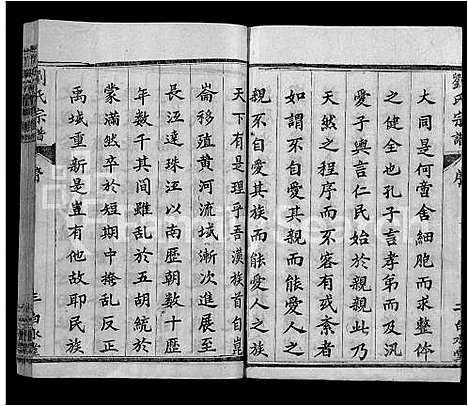 劉氏宗譜 序 二 白水堂
大同是何啻舍細胞而求整体
之健全也孔子言孝弟而及汎
愛子輿言仁民始於親親此乃
天然之程序而不容有或紊者
如謂不自愛其親而能愛人之
親不自愛其族而能愛人之族
天下有是理乎吾漢族首自崑
崙移殖黄河流域漸次進展至
長江達珠江以南歷朝數十歷
年數千其間雖亂於五胡統於
蒙滿然卒於短期中撥亂反正
禹域重新是豈有他故耶民族
劉氏宗譜 序 三 白水堂